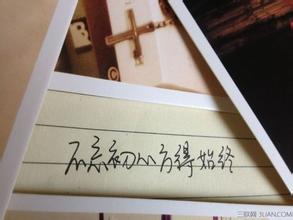 不忘初心方得始终
三联网 3LIAN.COM